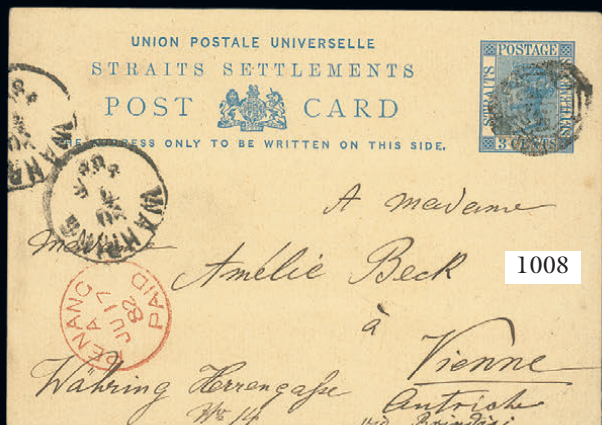 UNION POSTALE UNIVERSELLE
STRAITS SETTLEMENTS
POST CARD
THE ADDRESS ONLY TO BE WRITTEN ON THIS SIDE.
POSTAGE
STRAITS
3 CENTS
WÄHRING
WÄHRING
A madame
Madame
Amélie Beck
1008
à
Vienne
PENANG PAID
A
JU 17
82
Währing Herrengasse
No 14
Autriche
via Brindisi